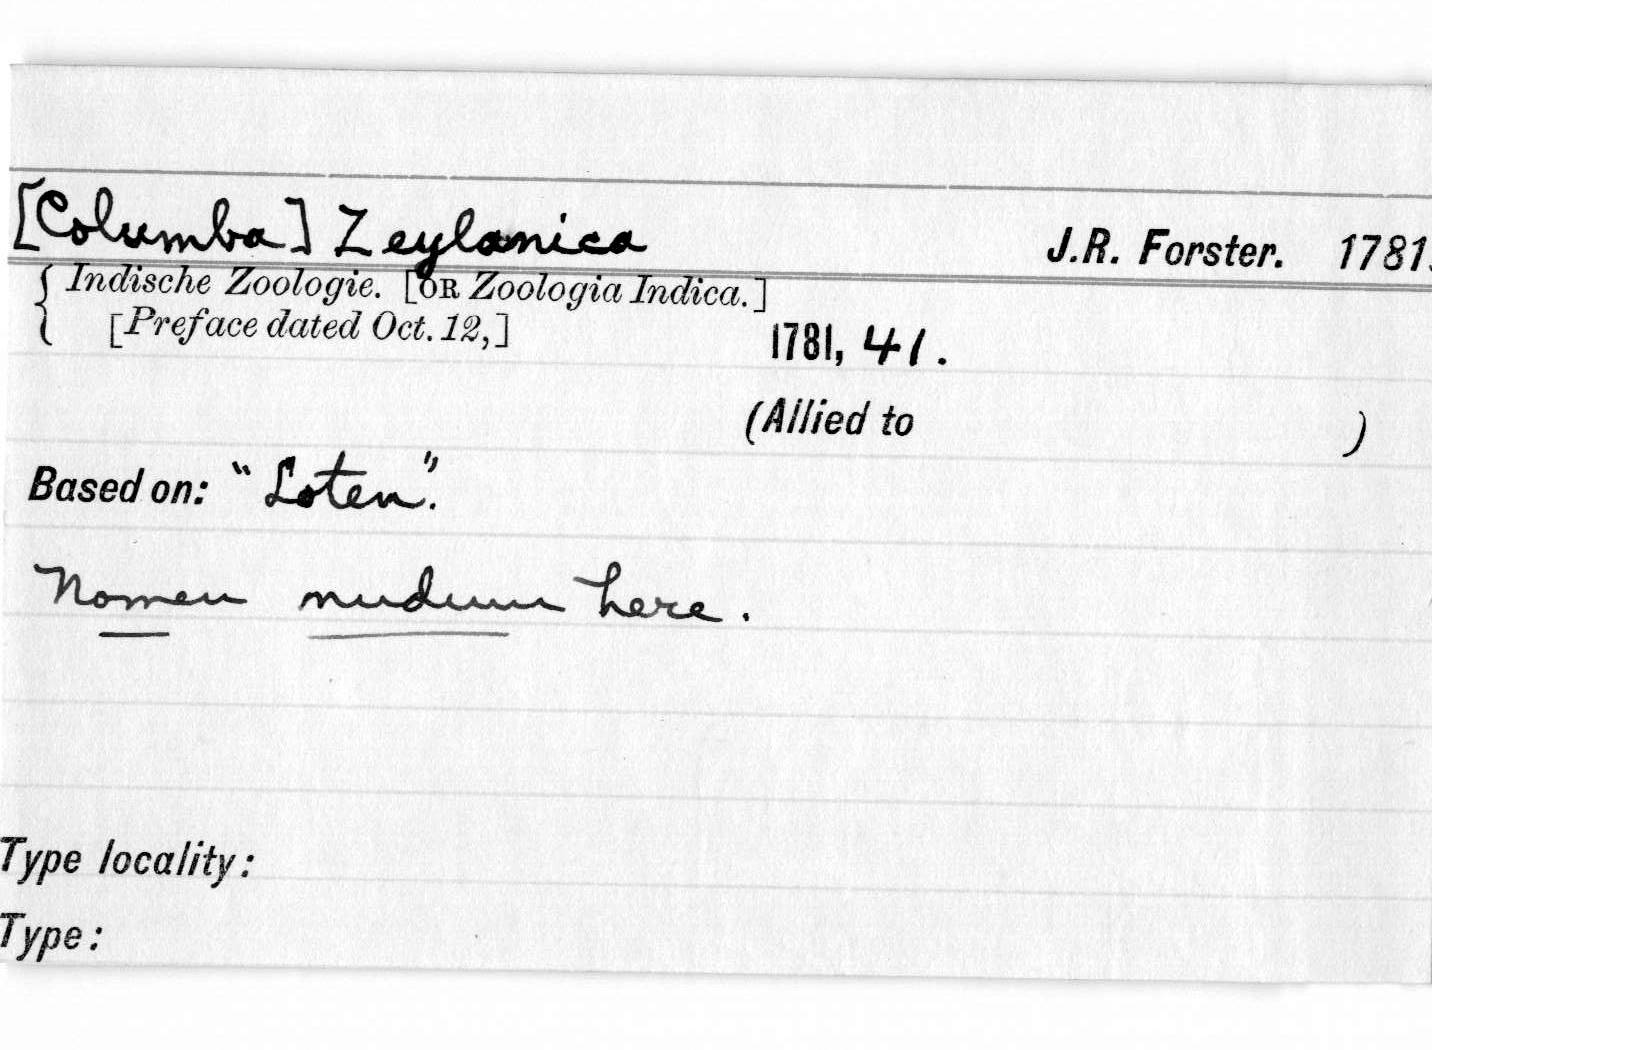 [Columba] Zeylanica J.R. Forster. 1781.
{ Indische Zoologie. [OR Zoologia Indica.]
[Preface dated Oct. 12,]
1781, 41.
(Allied to )
Based on: "Loten".
Nomen nudum here.
Type locality:
Type: